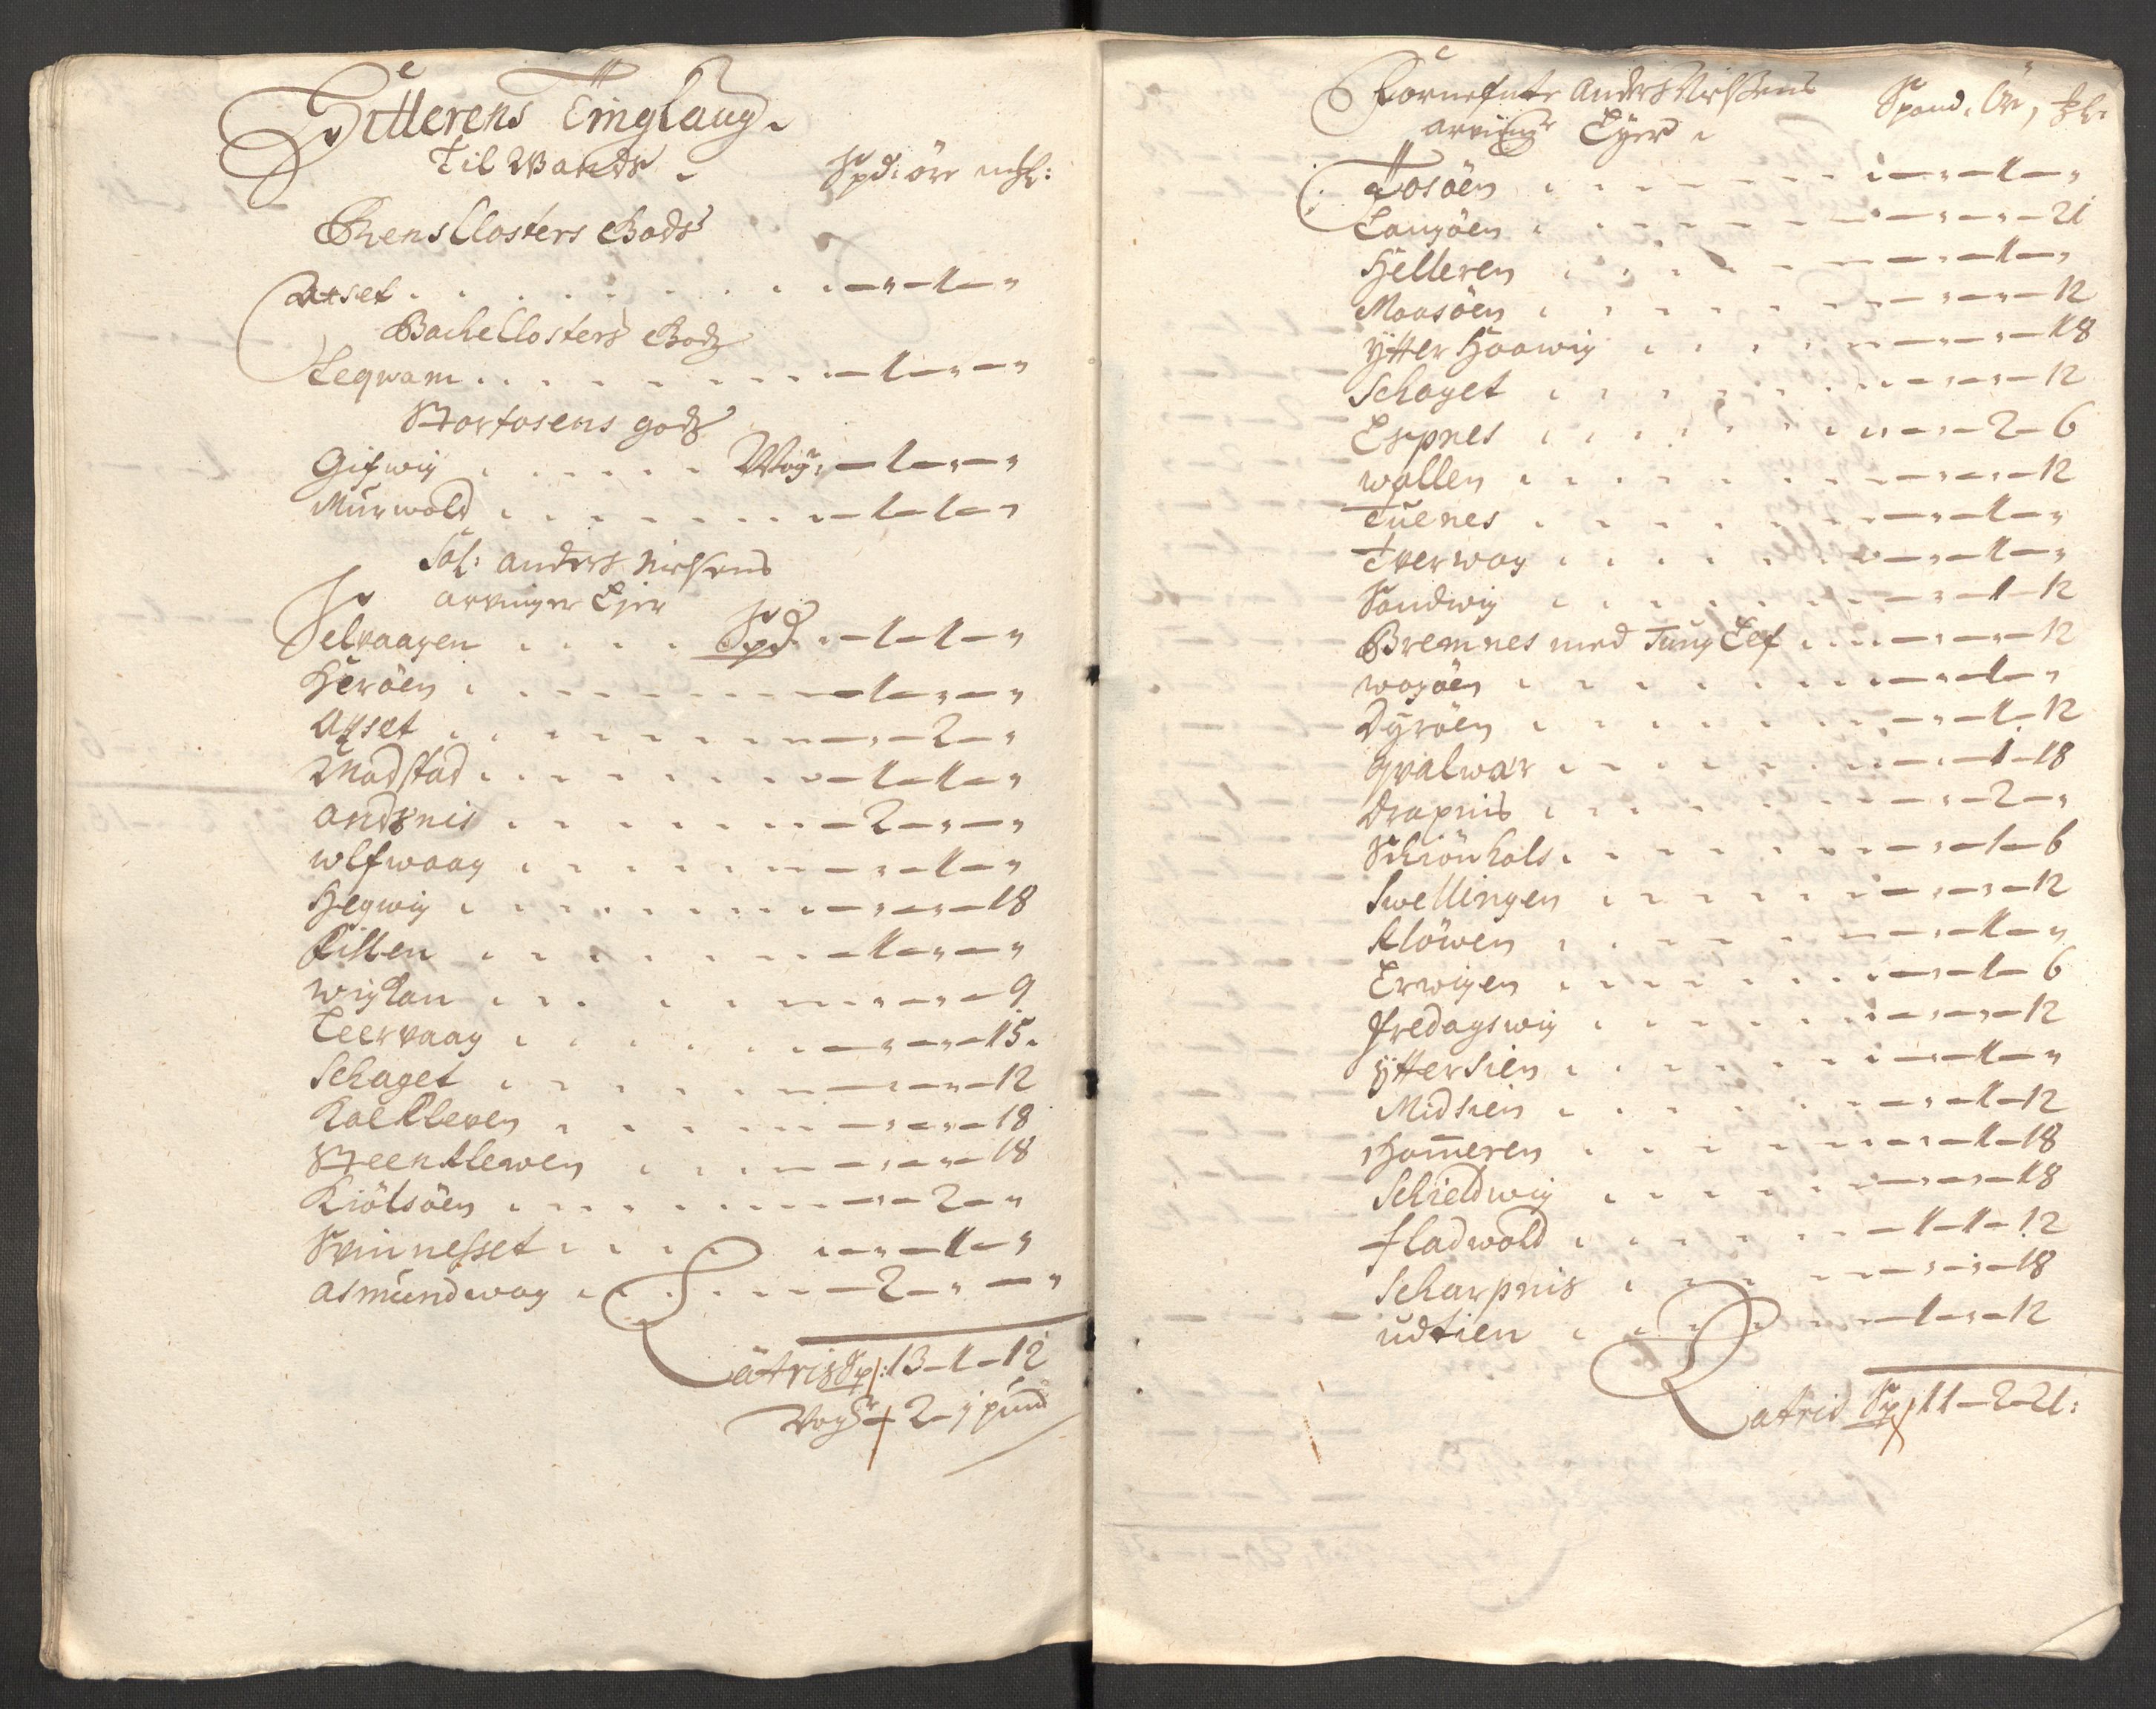 Hitterens Tinglaug
Til Wands Spd: öre mȝl:
Rens Closters Gods
Atset - „ - 1 - „
Bache Closters Godz
Leqvam - 1 - „ - „
Stortosens godz
Gifwig Wog: - 1 - „ - „
Murwold - 1 - 1 - „
Sal: Anders Nielsens
arvinger Ejer
Selvaagen Spd - 1 - 1 - „
Heröen - 1 - „ - „
Axset - „ - 2 - „
Madstad - 1 - 1 - „
Andsnis - 2 - „ - „
Wlfwaag - „ - 1 - „
Hegwig - „ - „ - 18
Fillen - 1 - „ - „
Wiglan - „ - „ - 9
Leervaag - „ - „ - 15
Schaget - „ - „ - 12
Kaelkleven - „ - „ - 18
Steenklewen - „ - „ - 18
Kiölsöen - „ - 2 - „
Svinnesset - „ - 1 - „
Asmundwog - 2 - „ - „
Latris Sp: 13 - 1 - 12
Vogr - 2 - 1 pund
Fornefnte Anders Nielsens
arvinger Eyer Spand, Ör, ȝl:
Fosöen - „ - 1 - „
Langöen - „ - „ - 21
Helleren - „ - 1 - „
Maasöen - „ - „ - 12
Ytter Haawig - „ - „ - 18
Schaget - „ - „ - 12
Espnes - „ - 2 - 6
Wallen - „ - „ - 12
Tuenes - „ - 1 - „
Tverwog - „ - 1 - „
Sandwig - „ - 1 - 12
Bremnes med Tung Lef - „ - „ - 12
Wogöen - „ - 1 - „
Dyröen - „ - 1 - 12
Qvalwær - „ - 1 - 18
Drapnis - „ - 2 - „
Schiönhals - „ - 1 - 6
Swellingen - „ - „ - 12
Klöwen - „ - 1 - „
Erwigen - „ - 1 - 6
Fredagswig - „ - „ - 12
Yttersien - „ - 1 - „
Midsien - „ - 1 - 12
Hameren - „ - 1 - 18
Schieldwig - „ - „ - 18
Fladwold - 1 - 1 - 12
Scharpnis - „ - „ - 18
Udtien - 1 - „ - 12
Latris Sp 11 - 2 - 21: